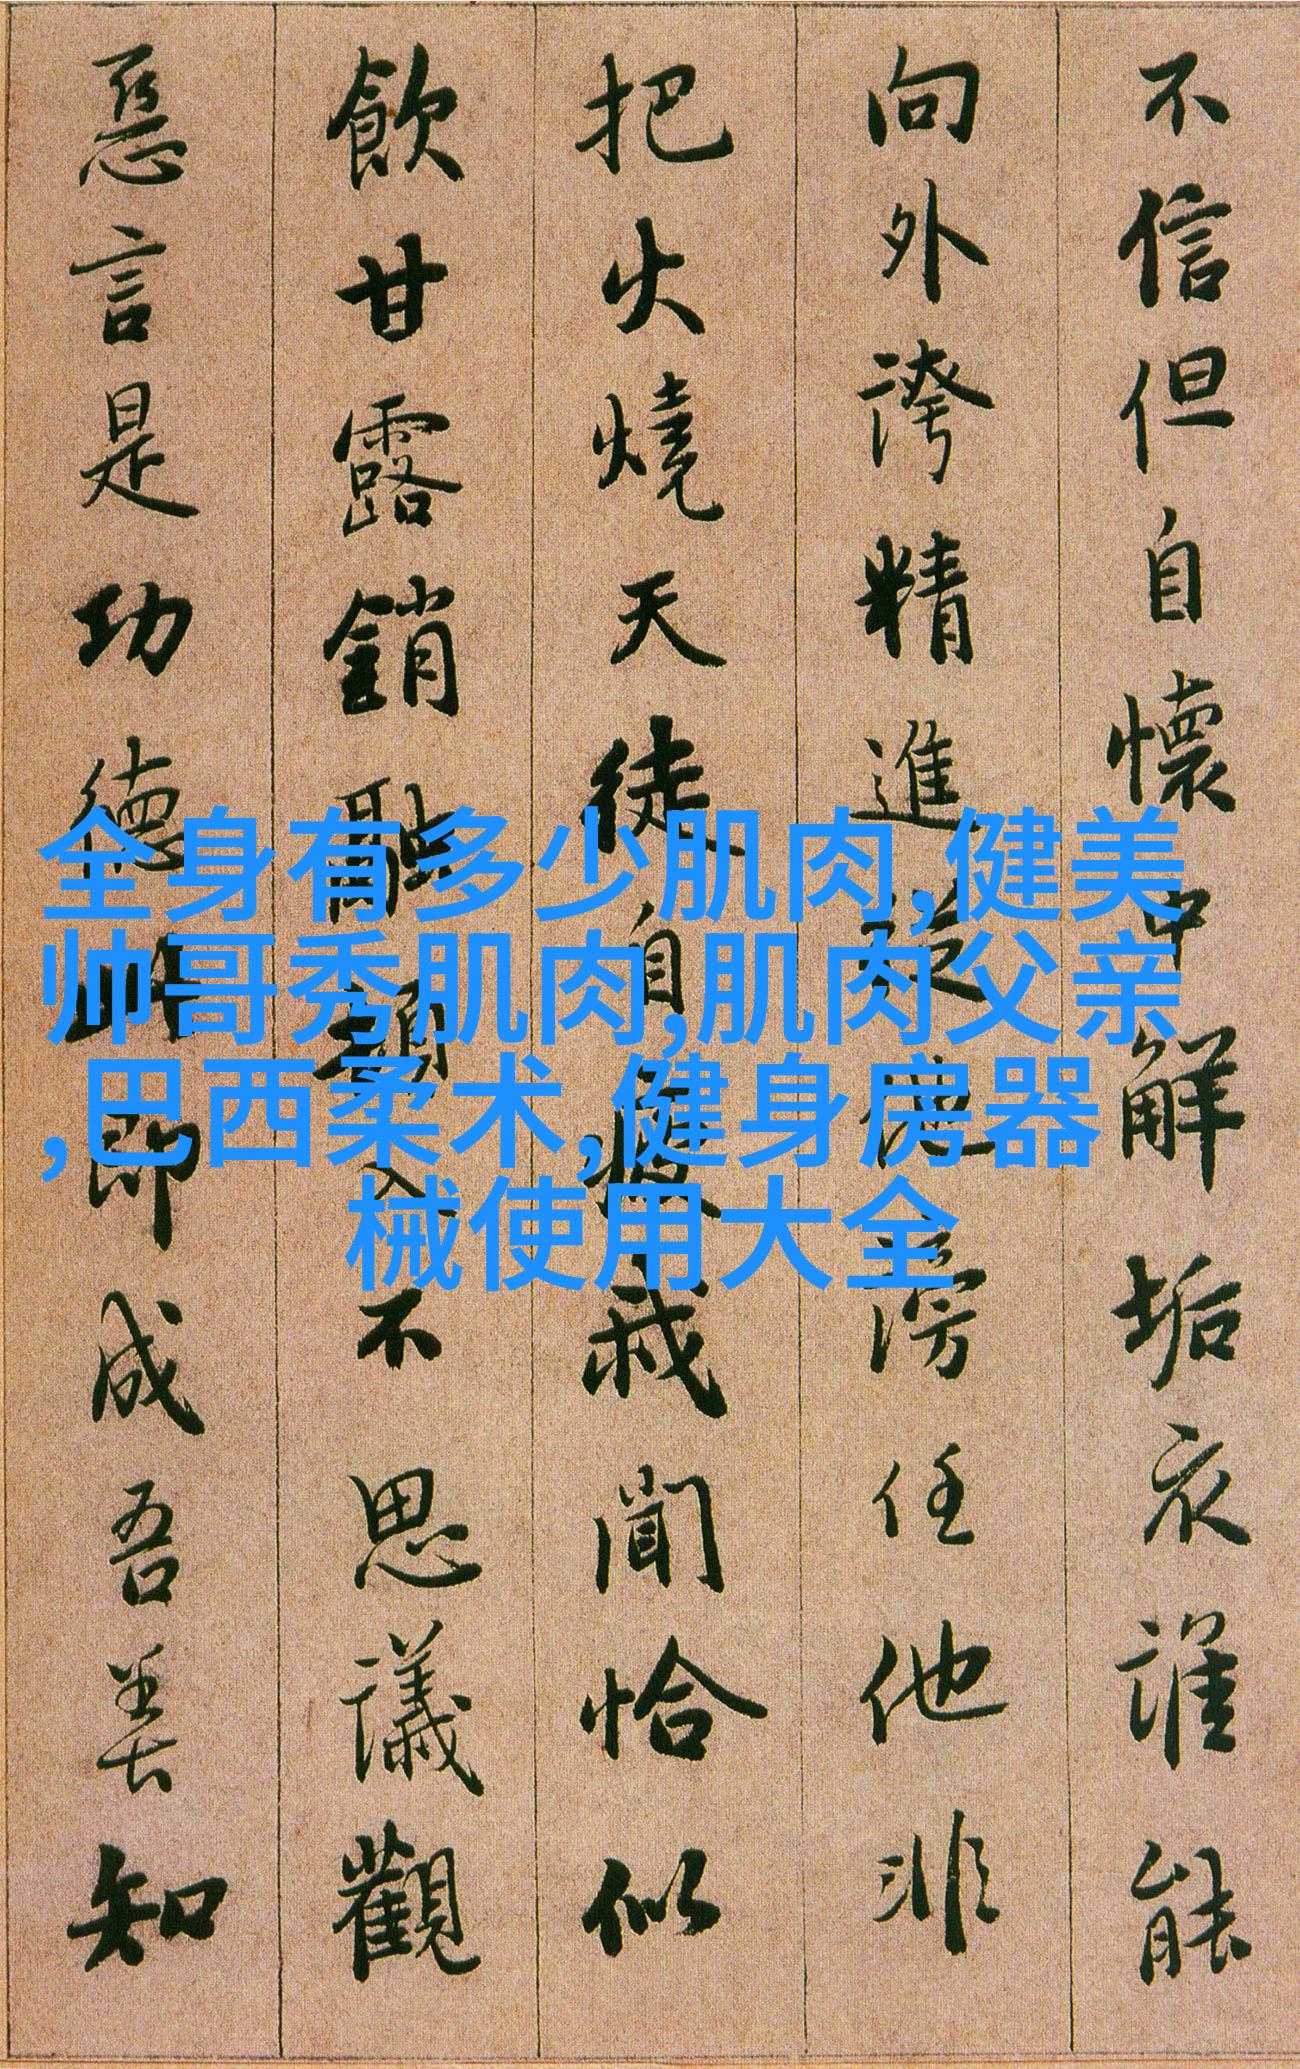 不信但自懷中解垢衣誰能
向外誇精進從他謗任他非
把火燒天徒自疲我聞恰似
飲甘露銷融頓入不思議觀
惡言是功德此即成吾善知
全身有多少肌肉,健美
帅哥秀肌肉,肌肉父亲
,巴西柔术,健身房器
械使用大全